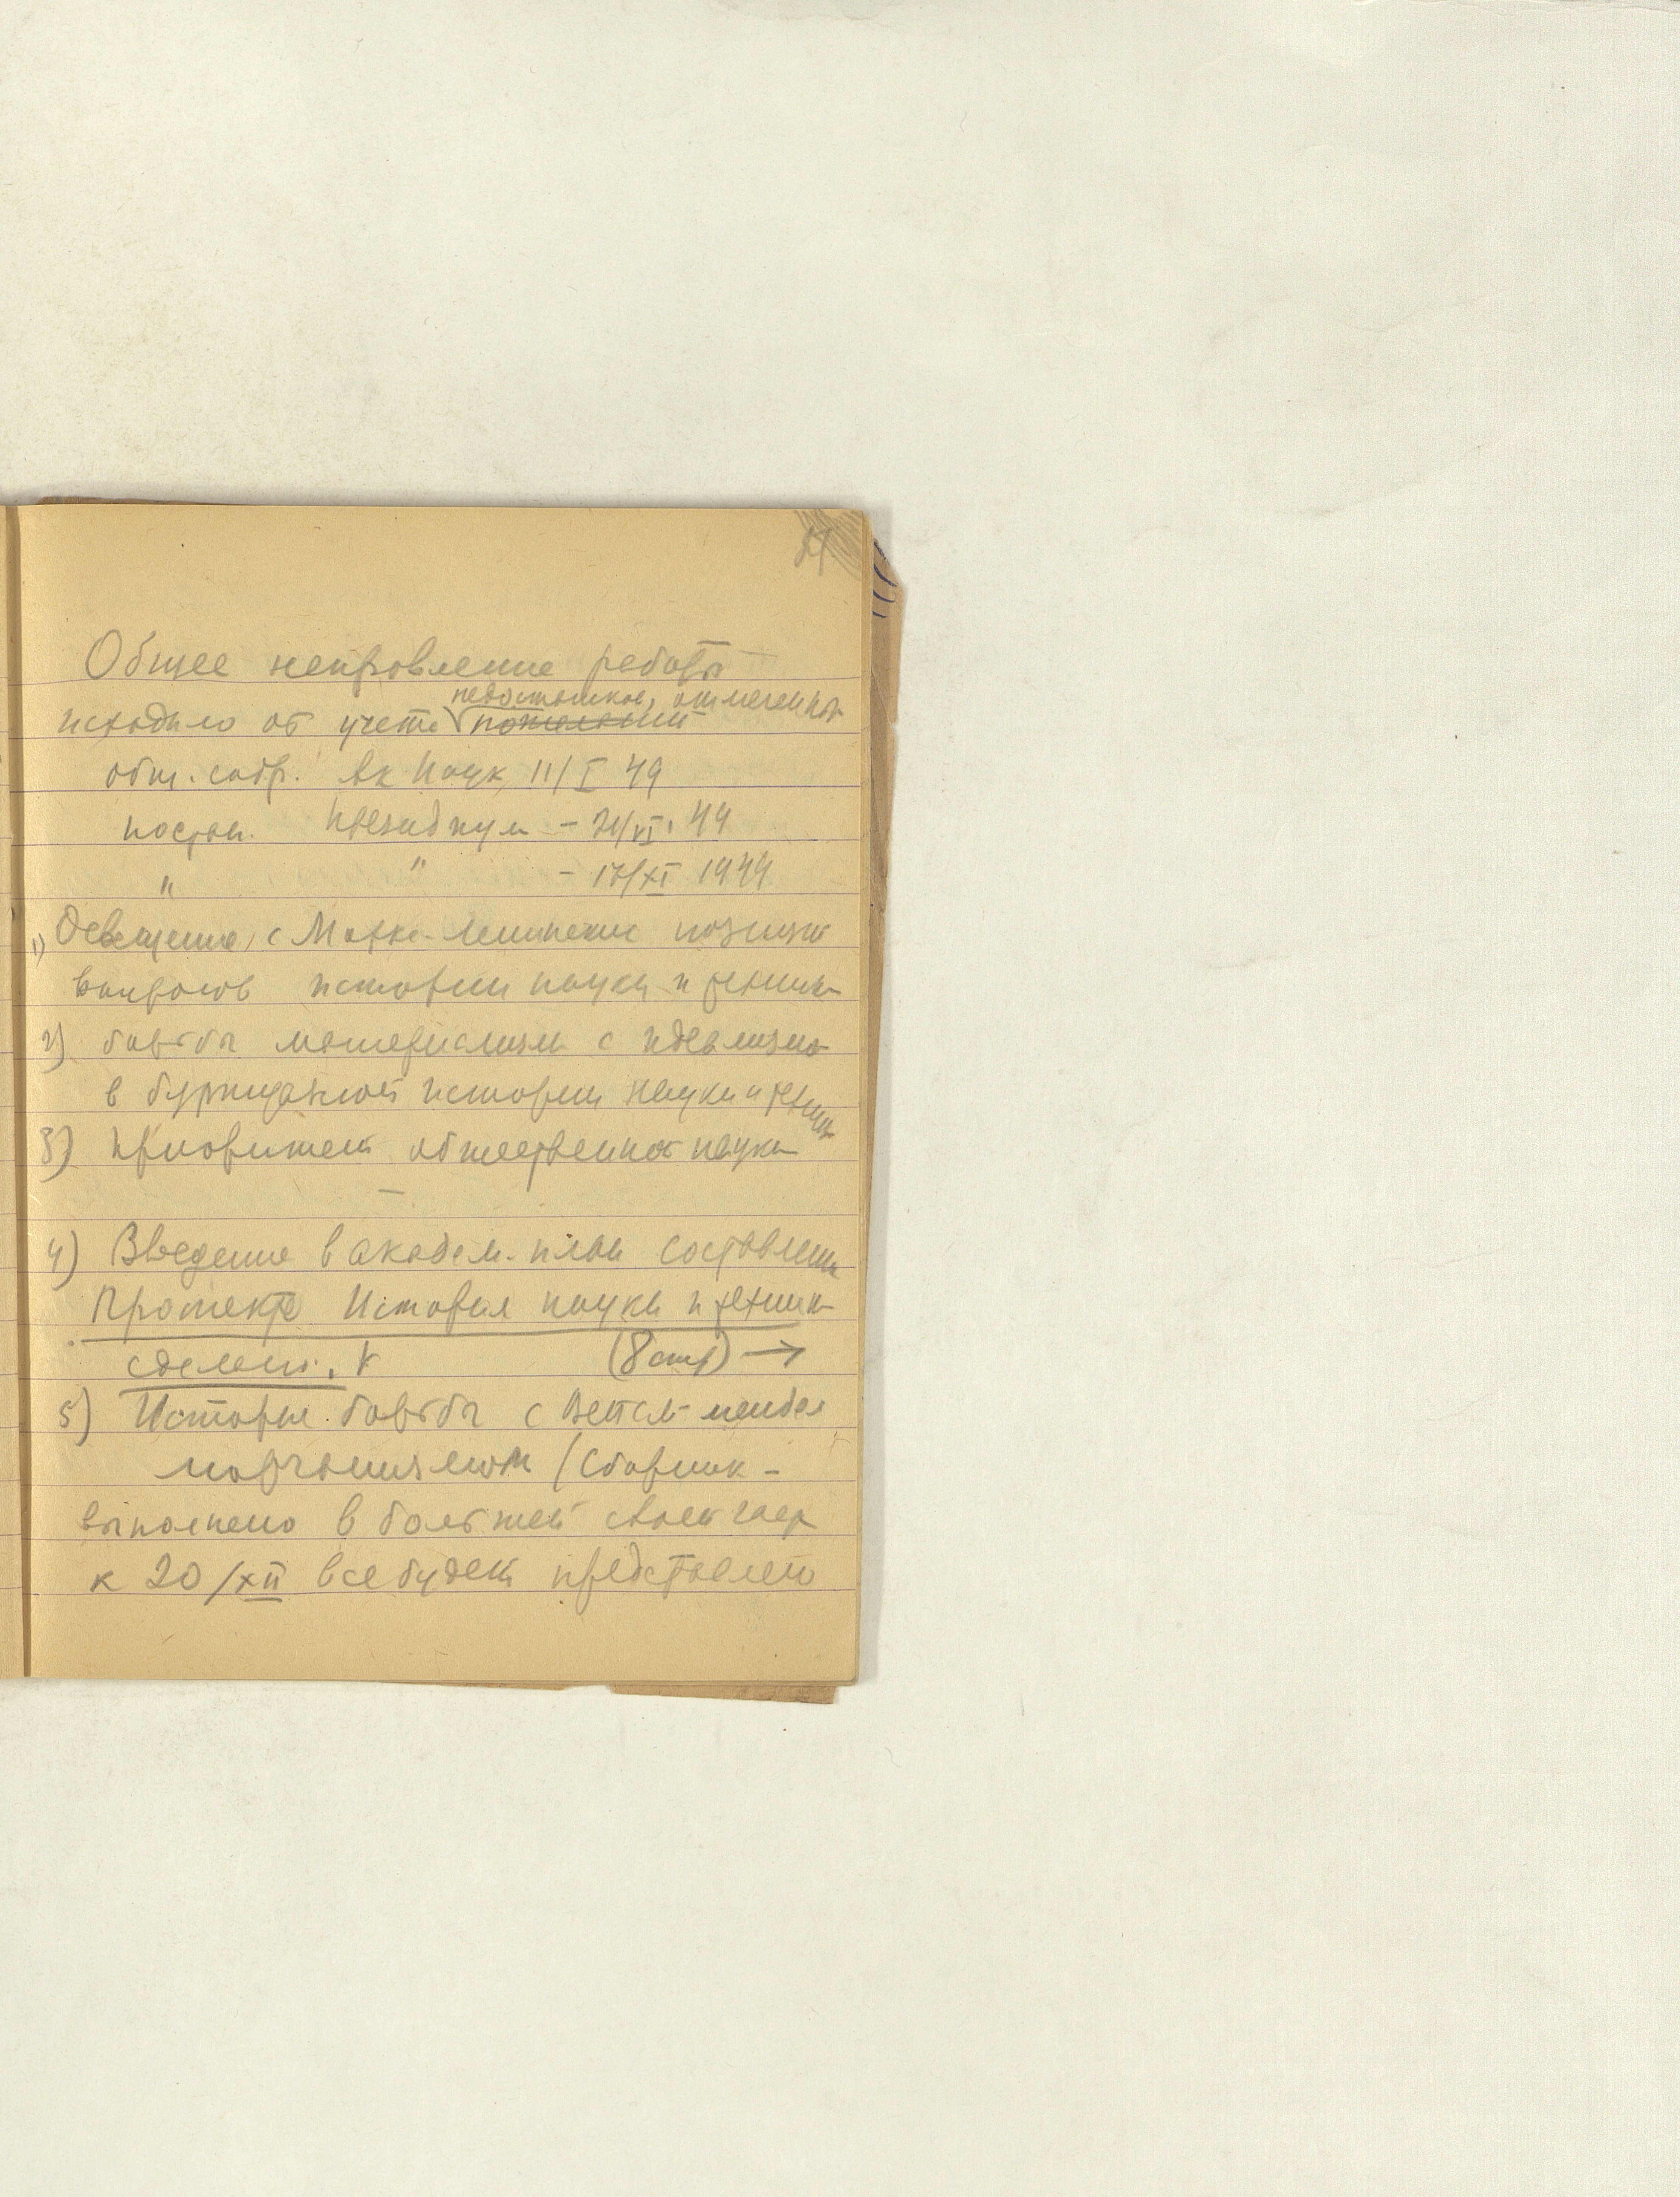 Общее направление работы
недостатков, отмеченных
исходило от учета пожеланий
общ. собр. Ак Наук 11/I 49
постан. Президиум - 21/VI. 49
" " - 17/XI 1949
1) Освещение, с Маркс-ленинских позиций
вопросов истории науки и техники
2) борьба материализм с идеализмо
в буржуазной истории науки и техник
3) Приоритет отечественной науки
4) Введение в академ. план составлени
Проспекта История науки и техники
сделано. V (8 стр) →
5) История борьбы с Вейсм- мендел
морганизмом (Сборник -
выполнено в большей своей част
к 20/XII все будет представлено